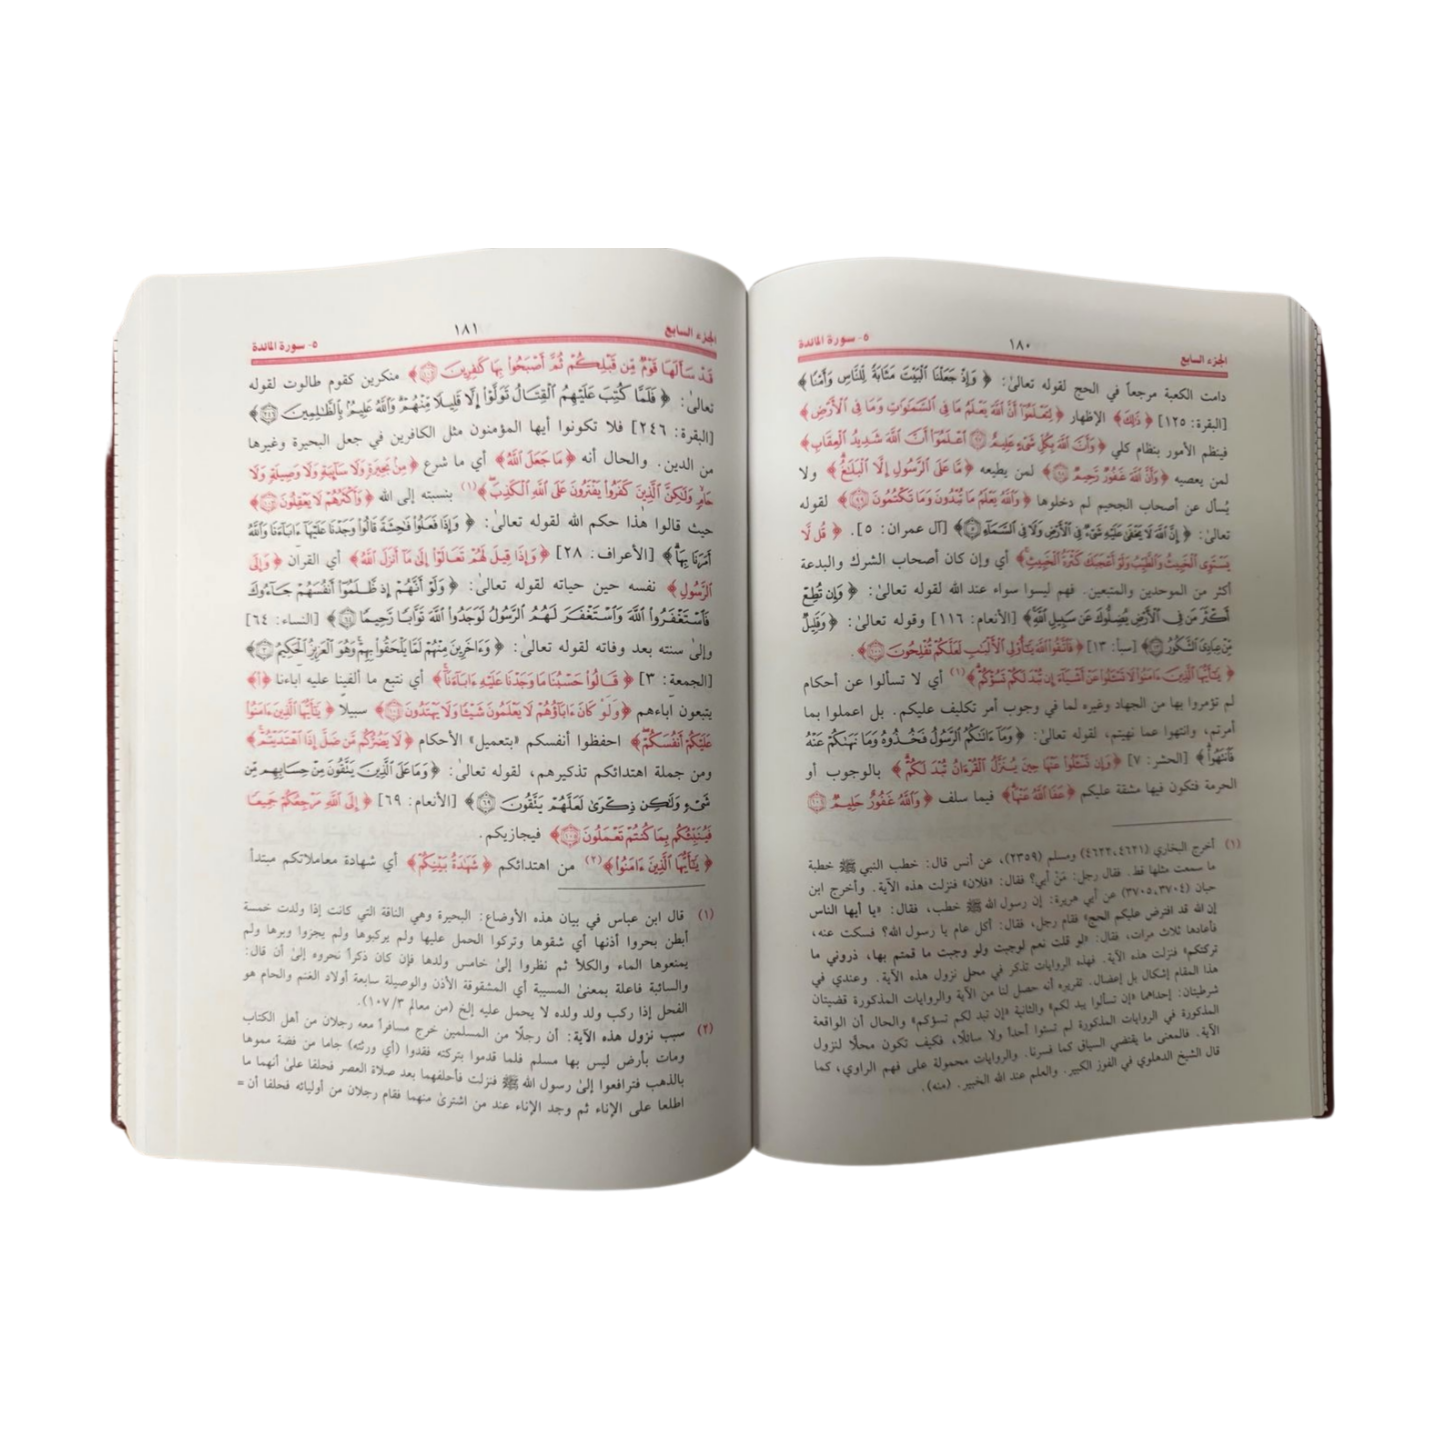 الجزء السابع ١٨٠ ٥- سورة المائدة
دامت الكعبة مرجعاً في الحج لقوله تعالىٰ: ﴿وَإِذْ جَعَلْنَا ٱلْبَيْتَ مَثَابَةً لِّلنَّاسِ وَأَمْنًا﴾
[البقرة: ١٢٥] ﴿ذَٰلِكَ﴾ الإظهار ﴿لِتَعْلَمُوٓا۟ أَنَّ ٱللَّهَ يَعْلَمُ مَا فِى ٱلسَّمَٰوَٰتِ وَمَا فِى ٱلْأَرْضِ﴾
فينظم الأمور بنظام كلي ﴿وَأَنَّ ٱللَّهَ بِكُلِّ شَىْءٍ عَلِيمٌ ٩٧ ٱعْلَمُوٓا۟ أَنَّ ٱللَّهَ شَدِيدُ ٱلْعِقَابِ﴾
لمن يعصيه ﴿وَأَنَّ ٱللَّهَ غَفُورٌ رَّحِيمٌ ٩٨﴾ لمن يطيعه ﴿مَّا عَلَى ٱلرَّسُولِ إِلَّا ٱلْبَلَٰغُ﴾ ولا
يُسأل عن أصحاب الجحيم لم دخلوها ﴿وَٱللَّهُ يَعْلَمُ مَا تُبْدُونَ وَمَا تَكْتُمُونَ ٩٩﴾ لقوله
تعالىٰ: ﴿إِنَّ ٱللَّهَ لَا يَخْفَىٰ عَلَيْهِ شَىْءٌ فِى ٱلْأَرْضِ وَلَا فِى ٱلسَّمَآءِ ٥﴾ [آل عمران: ٥]. ﴿قُل لَّا
يَسْتَوِى ٱلْخَبِيثُ وَٱلطَّيِّبُ وَلَوْ أَعْجَبَكَ كَثْرَةُ ٱلْخَبِيثِ﴾ أي وإن كان أصحاب الشرك والبدعة
أكثر من الموحدين والمتبعين. فهم ليسوا سواء عند الله لقوله تعالىٰ: ﴿وَإِن تُطِعْ
أَكْثَرَ مَن فِى ٱلْأَرْضِ يُضِلُّوكَ عَن سَبِيلِ ٱللَّهِ﴾ [الأنعام: ١١٦] وقوله تعالىٰ: ﴿وَقَلِيلٌ
مِّنْ عِبَادِىَ ٱلشَّكُورُ ١٣﴾ [سبأ: ١٣] ﴿فَٱتَّقُوا۟ ٱللَّهَ يَٰٓأُو۟لِى ٱلْأَلْبَٰبِ لَعَلَّكُمْ تُفْلِحُونَ ١٠٠﴾.
﴿يَٰٓأَيُّهَا ٱلَّذِينَ ءَامَنُوا۟ لَا تَسْـَٔلُوا۟ عَنْ أَشْيَآءَ إِن تُبْدَ لَكُمْ تَسُؤْكُمْ﴾(١) أي لا تسألوا عن أحكام
لم تؤمروا بها من الجهاد وغيره لما في وجوب أمر تكليف عليكم. بل اعملوا بما
أمرتم، وانتهوا عما نهيتم، لقوله تعالىٰ: ﴿وَمَآ ءَاتَىٰكُمُ ٱلرَّسُولُ فَخُذُوهُ وَمَا نَهَىٰكُمْ عَنْهُ
فَٱنتَهُوا۟﴾ [الحشر: ٧] ﴿وَإِن تَسْـَٔلُوا۟ عَنْهَا حِينَ يُنَزَّلُ ٱلْقُرْءَانُ تُبْدَ لَكُمْ﴾ بالوجوب أو
الحرمة فتكون فيها مشقة عليكم ﴿عَفَا ٱللَّهُ عَنْهَا﴾ فيما سلف ﴿وَٱللَّهُ غَفُورٌ حَلِيمٌ ١٠١﴾
(١) أخرج البخاري (٤٦٢١، ٤٦٢٢) ومسلم (٢٣٥٩)، عن أنس قال: خطب النبي ﷺ خطبة
ما سمعت مثلها قط. فقال رجل: مَنْ أبي؟ فقال: «فلان» فنزلت هذه الآية. وأخرج ابن
حبان (٣٧٠٤، ٣٧٠٥) عن أبي هريرة: إن رسول الله ﷺ خطب، فقال: «يا أيها الناس
إن الله قد افترض عليكم الحج» فقام رجل، فقال: أكل عام يا رسول الله؟ فسكت عنه،
فأعادها ثلاث مرات، فقال: «لو قلت نعم لوجبت ولو وجبت ما قمتم بها، ذروني ما
تركتكم» فنزلت هذه الآية. فهذه الروايات تذكر في محل نزول هذه الآية. وعندي في
هذا المقام إشكال بل إعضال. تقريره أنه حصل لنا من الآية والروايات المذكورة قضيتان
شرطيتان: إحداهما «إن تسألوا يبد لكم» والثانية «إن تبد لكم تسؤكم» والحال أن الواقعة
المذكورة في الروايات المذكورة لم تسئوا أحداً ولا سائلًا، فكيف تكون محلًا لنزول
الآية. فالمعنى ما يقتضي السياق كما فسرنا. والروايات محمولة على فهم الراوي، كما
قال الشيخ الدهلوي في الفوز الكبير. والعلم عند الله الخبير. (منه).
الجزء السابع ١٨١ ٥- سورة المائدة
قَدْ سَأَلَهَا قَوْمٌ مِّن قَبْلِكُمْ ثُمَّ أَصْبَحُوا۟ بِهَا كَٰفِرِينَ ١٠٢﴾ منكرين كقوم طالوت لقوله
تعالىٰ: ﴿فَلَمَّا كُتِبَ عَلَيْهِمُ ٱلْقِتَالُ تَوَلَّوْا۟ إِلَّا قَلِيلًا مِّنْهُمْ وَٱللَّهُ عَلِيمٌۢ بِٱلظَّٰلِمِينَ ٢٤٦﴾
[البقرة: ٢٤٦] فلا تكونوا أيها المؤمنون مثل الكافرين في جعل البحيرة وغيرها
من الدين. والحال أنه ﴿مَا جَعَلَ ٱللَّهُ﴾ أي ما شرع ﴿مِنۢ بَحِيرَةٍ وَلَا سَآئِبَةٍ وَلَا وَصِيلَةٍ وَلَا
حَامٍ وَلَٰكِنَّ ٱلَّذِينَ كَفَرُوا۟ يَفْتَرُونَ عَلَى ٱللَّهِ ٱلْكَذِبَ﴾(١) بنسبته إلى الله ﴿وَأَكْثَرُهُمْ لَا يَعْقِلُونَ ١٠٣﴾
حيث قالوا هٰذا حكم الله لقوله تعالىٰ: ﴿وَإِذَا فَعَلُوا۟ فَٰحِشَةً قَالُوا۟ وَجَدْنَا عَلَيْهَآ ءَابَآءَنَا وَٱللَّهُ
أَمَرَنَا بِهَا﴾ [الأعراف: ٢٨] ﴿وَإِذَا قِيلَ لَهُمْ تَعَالَوْا۟ إِلَىٰ مَآ أَنزَلَ ٱللَّهُ﴾ أي القرآن ﴿وَإِلَى
ٱلرَّسُولِ﴾ نفسه حين حياته لقوله تعالىٰ: ﴿وَلَوْ أَنَّهُمْ إِذ ظَّلَمُوٓا۟ أَنفُسَهُمْ جَآءُوكَ
فَٱسْتَغْفَرُوا۟ ٱللَّهَ وَٱسْتَغْفَرَ لَهُمُ ٱلرَّسُولُ لَوَجَدُوا۟ ٱللَّهَ تَوَّابًا رَّحِيمًا ٦٤﴾ [النساء: ٦٤]
وإلىٰ سنته بعد وفاته لقوله تعالىٰ: ﴿وَءَاخَرِينَ مِنْهُمْ لَمَّا يَلْحَقُوا۟ بِهِمْ وَهُوَ ٱلْعَزِيزُ ٱلْحَكِيمُ ٣﴾
[الجمعة: ٣] ﴿قَالُوا۟ حَسْبُنَا مَا وَجَدْنَا عَلَيْهِ ءَابَآءَنَآ﴾ أي نتبع ما ألفينا عليه آباءنا ﴿أَ﴾
يتبعون آباءهم ﴿وَلَوْ كَانَ ءَابَآؤُهُمْ لَا يَعْلَمُونَ شَيْـًٔا وَلَا يَهْتَدُونَ ١٠٤﴾ سبيلًا ﴿يَٰٓأَيُّهَا ٱلَّذِينَ ءَامَنُوا۟
عَلَيْكُمْ أَنفُسَكُمْ﴾ احفظوا أنفسكم «بتعميل» الأحكام ﴿لَا يَضُرُّكُم مَّن ضَلَّ إِذَا ٱهْتَدَيْتُمْ﴾
ومن جملة اهتدائكم تذكيرهم، لقوله تعالىٰ: ﴿وَمَا عَلَى ٱلَّذِينَ يَتَّقُونَ مِنْ حِسَابِهِم مِّن
شَىْءٍ وَلَٰكِن ذِكْرَىٰ لَعَلَّهُمْ يَتَّقُونَ ٦٩﴾ [الأنعام: ٦٩] ﴿إِلَى ٱللَّهِ مَرْجِعُكُمْ جَمِيعًا
فَيُنَبِّئُكُم بِمَا كُنتُمْ تَعْمَلُونَ ١٠٥﴾ فيجازيكم.
﴿يَٰٓأَيُّهَا ٱلَّذِينَ ءَامَنُوا۟﴾(٢) من اهتدائكم ﴿شَهَٰدَةُ بَيْنِكُمْ﴾ أي شهادة معاملاتكم مبتدأ
(١) قال ابن عباس في بيان هذه الأوضاع: البحيرة وهي الناقة التي كانت إذا ولدت خمسة
أبطن بحروا أذنها أي شقوها وتركوا الحمل عليها ولم يركبوها ولم يجزوا وبرها ولم
يمنعوها الماء والكلأ ثم نظروا إلىٰ خامس ولدها فإن كان ذكراً نحروه إلى أن قال:
والسائبة فاعلة بمعنىٰ المسيبة أي المشقوقة الأذن والوصيلة سابعة أولاد الغنم والحام هو
الفحل إذا ركب ولد ولده لا يحمل عليه إلخ (من معالم ١٠٧/٣).
(٢) سبب نزول هذه الآية: أن رجلًا من المسلمين خرج مسافراً معه رجلان من أهل الكتاب
ومات بأرض ليس بها مسلم فلما قدموا بتركته فقدوا (أي ورثته) جاما من فضة مموها
بالذهب فترافعوا إلىٰ رسول الله ﷺ فنزلت فأحلفهما بعد صلاة العصر فحلفا علىٰ أنهما ما
اطلعا على الإناء ثم وجد الإناء عند من اشترىٰ منهما فقام رجلان من أوليائه فحلفا أن =